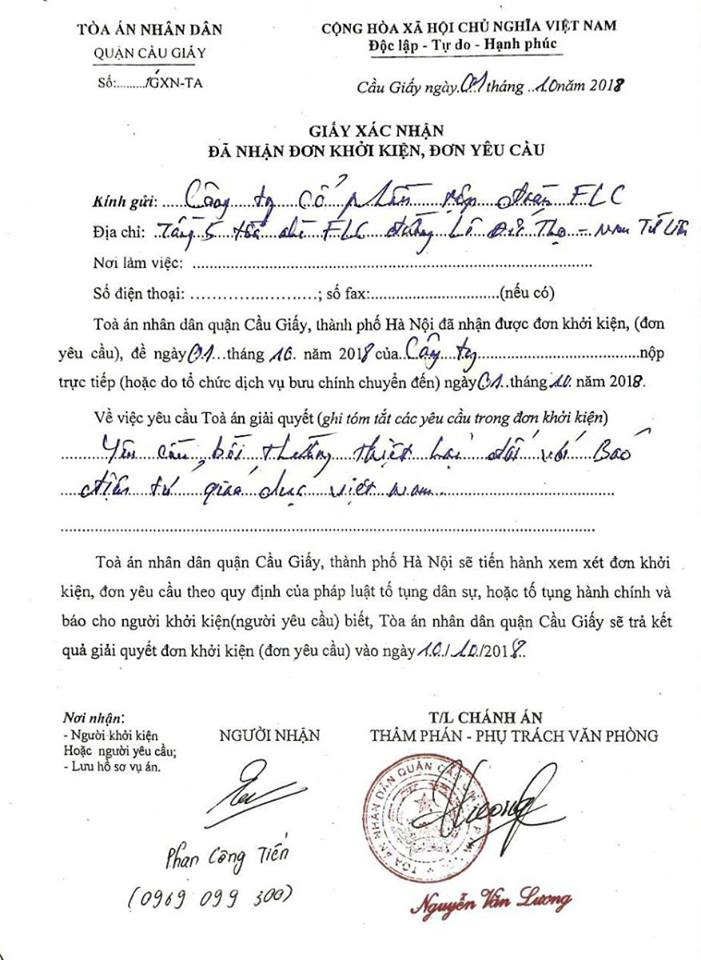 TÒA ÁN NHÂN DÂN
QUẬN CẦU GIẤY
Số:........./GXN-TA
CỘNG HÒA XÃ HỘI CHỦ NGHĨA VIỆT NAM
Độc lập - Tự do - Hạnh phúc
Cầu Giấy ngày 01 tháng 10 năm 2018
GIẤY XÁC NHẬN
ĐÃ NHẬN ĐƠN KHỞI KIỆN, ĐƠN YÊU CẦU
Kính gửi: Công ty Cổ phần tập đoàn FLC
Địa chỉ: Tầng 5 tòa nhà FLC đường Lê Đức Thọ - Nam Từ Liêm
Nơi làm việc: ..........
Số điện thoại: ....................; số fax:....................(nếu có)
Toà án nhân dân quận Cầu Giấy, thành phố Hà Nội đã nhận được đơn khởi kiện, (đơn
yêu cầu), đề ngày 01 tháng 10 năm 2018 của Công ty....................nộp
trực tiếp (hoặc do tổ chức dịch vụ bưu chính chuyển đến) ngày 01 tháng 10 năm 2018.
Về việc yêu cầu Toà án giải quyết (ghi tóm tắt các yêu cầu trong đơn khởi kiện)
Yêu cầu bồi thường thiệt hại đối với Báo
điện tử giáo dục việt nam
Toà án nhân dân quận Cầu Giấy, thành phố Hà Nội sẽ tiến hành xem xét đơn khởi
kiện, đơn yêu cầu theo quy định của pháp luật tố tụng dân sự, hoặc tố tụng hành chính và
báo cho người khởi kiện(người yêu cầu) biết, Tòa án nhân dân quận Cầu Giấy sẽ trả kết
quả giải quyết đơn khởi kiện (đơn yêu cầu) vào ngày 10/10/2018.
Nơi nhận:
- Người khởi kiện
Hoặc người yêu cầu;
- Lưu hồ sơ vụ án.
NGƯỜI NHẬN
Phan Công Tiến
(0969 099 300)
T/L CHÁNH ÁN
THẨM PHÁN - PHỤ TRÁCH VĂN PHÒNG
TOÀ ÁN NHÂN DÂN QUẬN CẦU
Nguyễn Văn Lương